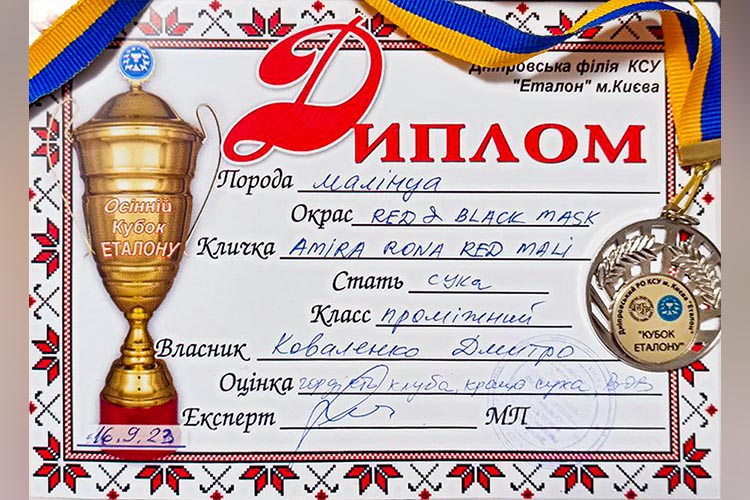 Диплом
Дніпровська філія КСУ
"Еталон" м.Києва
Осінній
Кубок
ЕТАЛОНУ
Порода малінуа
Окрас RED & BLACK MASK
Кличка AMIRA RONA RED MALI
Стать сука
Класс проміжний
Власник Коваленко Дмитро
Оцінка гордість клуба, краща сука, ВОВ
Експерт МП
16.9.23
Дніпровський РО КСУ м. Києва "Еталон"
"КУБОК
ЕТАЛОНУ"